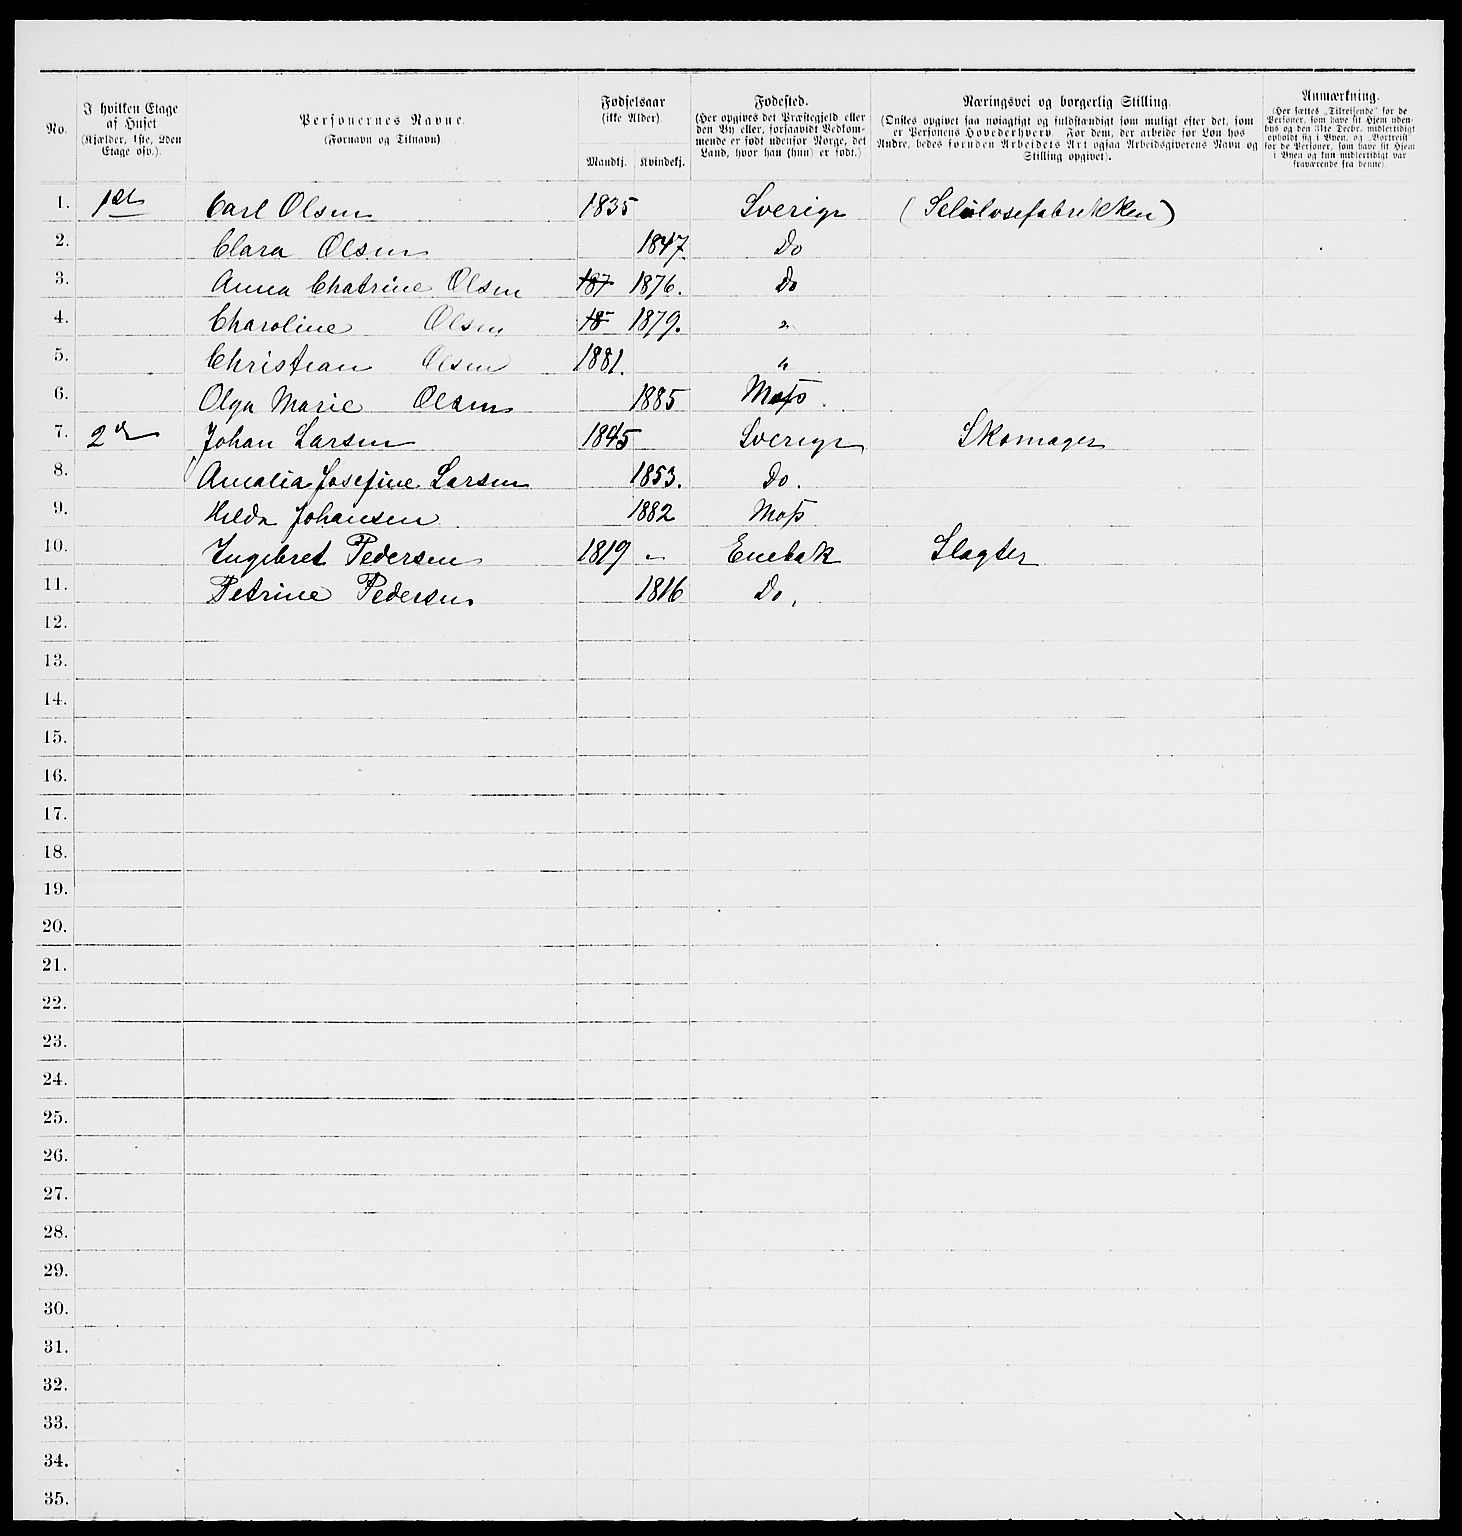 No.
I hvilken Etage af Huset (Kjælder, 1ste, 2den Etage osv.).
Personernes Navne. (Fornavn og Tilnavn).
Fødselsaar (ikke Alder)
Mandkj. Kvindekj.
Fødested. (Her opgives det Præstegjeld eller den By eller, forsaavidt Vedkommende er født udenfor Norge, det Land, hvor han (hun) er født.)
Næringsvei og borgerlig Stilling. (Ønskes opgivet saa nøiagtigt og fuldstændigt som muligt efter det, som er Personens Hovederhverv. For dem, der arbeide for Løn hos Andre, bedes foruden Arbeidets Art ogsaa Arbeidsgiverens Navn og Stilling opgivet).
Anmærkning. (Her sættes „Tilreisende“ for de Personer, som have sit Hjem udenbys og den 31te Decbr. midlertidigt opholdt sig i Byen, og „Bortreist“ for de Personer, som have sit Hjem i Byen og kun midlertidigt var fraværende fra denne).
1. 1st Carl Olsen 1835 Sverige (Selulosefabrikken)
2. Clara Olsen 1847. Do
3. Anna Chatrine Olsen 187 1876. Do
4. Charoline Olsen 18 1879. "
5. Christian Olsen 1881. "
6. Olga Marie Olsen 1885 Moss.
7. 2d Johan Larsen 1845 Sverige Skomager
8. Amalia Josefine Larsen 1853. Do.
9. Hilda Johansen 1882 Moss
10. Ingebret Pedersen 1819 " Enebak Slagter
11. Petrine Pedersen 1816 Do.
12.
13.
14.
15.
16.
17.
18.
19.
20.
21.
22.
23.
24.
25.
26.
27.
28.
29.
30.
31.
32.
33.
34.
35.